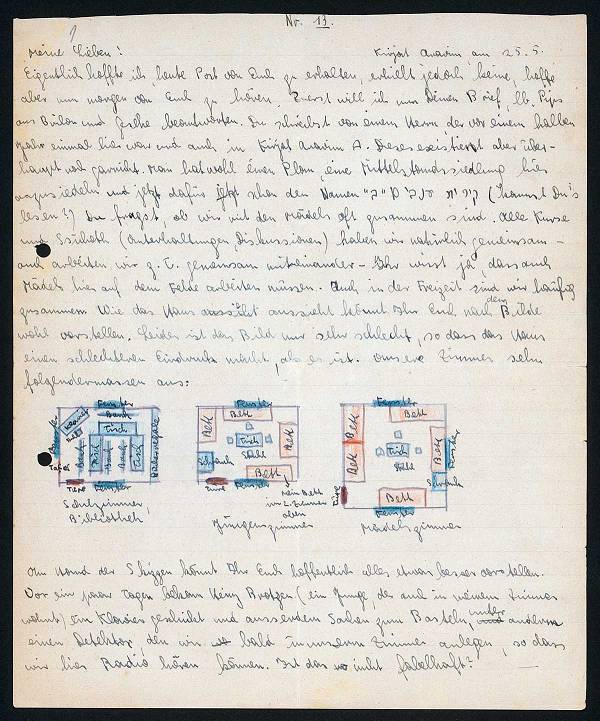 Nr. 13.
Meine Lieben! Kirjat Anavim, am 25.5.
Eigentlich hoffte ich, heute Post von Euch zu erhalten, erhielt jedoch keine, hoffe
aber nun morgen von Euch zu hören. Zuerst will ich nun Deinen Brief, lb. Pips
aus Brükn und beantworten. Du schreibst von einem Herrn der vor einem halben
Jahr einmal hier war und auch in Kirjat Anavim A. Dieses existiert aber über-
haupt noch garnicht. Man hat wohl einen Plan, eine Mittelstandssiedlung hier
anzusiedeln und jetzt dafür jetzt schon den Namen (kannst Du's
lesen?) Du fragst, ob wir mit den Mädels oft zusammen sind. Alle Kurse
und Ssichoth (Unterhaltungen, Diskussionen) haben wir natürlich gemeinsam -
auch arbeiten wir z. T. gemeinsam miteinander - Ihr wisst ja, dass auch
Mädels hier auf dem Felde arbeiten müssen. Auch in der Freizeit sind wir häufig
zusammen. Wie das Haus aussieht könnt Ihr Euch nach dem Bilde
wohl vorstellen. Leider ist das Bild nur sehr schlecht, so dass das Haus
einen schlechteren Eindruck macht, als es ist. Unsere Zimmer sehn
folgendermassen aus:
Fenster
Klavier
Bank
Tisch
Bank
Tisch
Bank
Tisch
Bank
Bücherregale
Tafel
Türe
Fenster
Schulzimmer,
Bibliothek
Fenster
Bett
Bett
Bett
Tisch
Stühle
Schrank
Bett
Türe
Fenster
Mein Bett
im 2. Zimmer
oben
Jungenzimmer
Fenster
Bett
Bett
Bett
Tisch
Stühle
Fenster
Schrank
Bett
Türe
Fenster
Mädelszimmer
An Hand der Skizzen könnt Ihr Euch hoffentlich alles etwas besser vorstellen.
Vor ein paar Tagen bekam Heinz Brotzen (ein Junge, der auch in meinem Zimmer
wohnt) ein Klavier geschickt und ausserdem Sachen zum Basteln, unter anderem
einen Detektor, den wir bald in unserm Zimmer anlegen, so dass
wir hier Radio hören können. Ist das nicht fabelhaft?